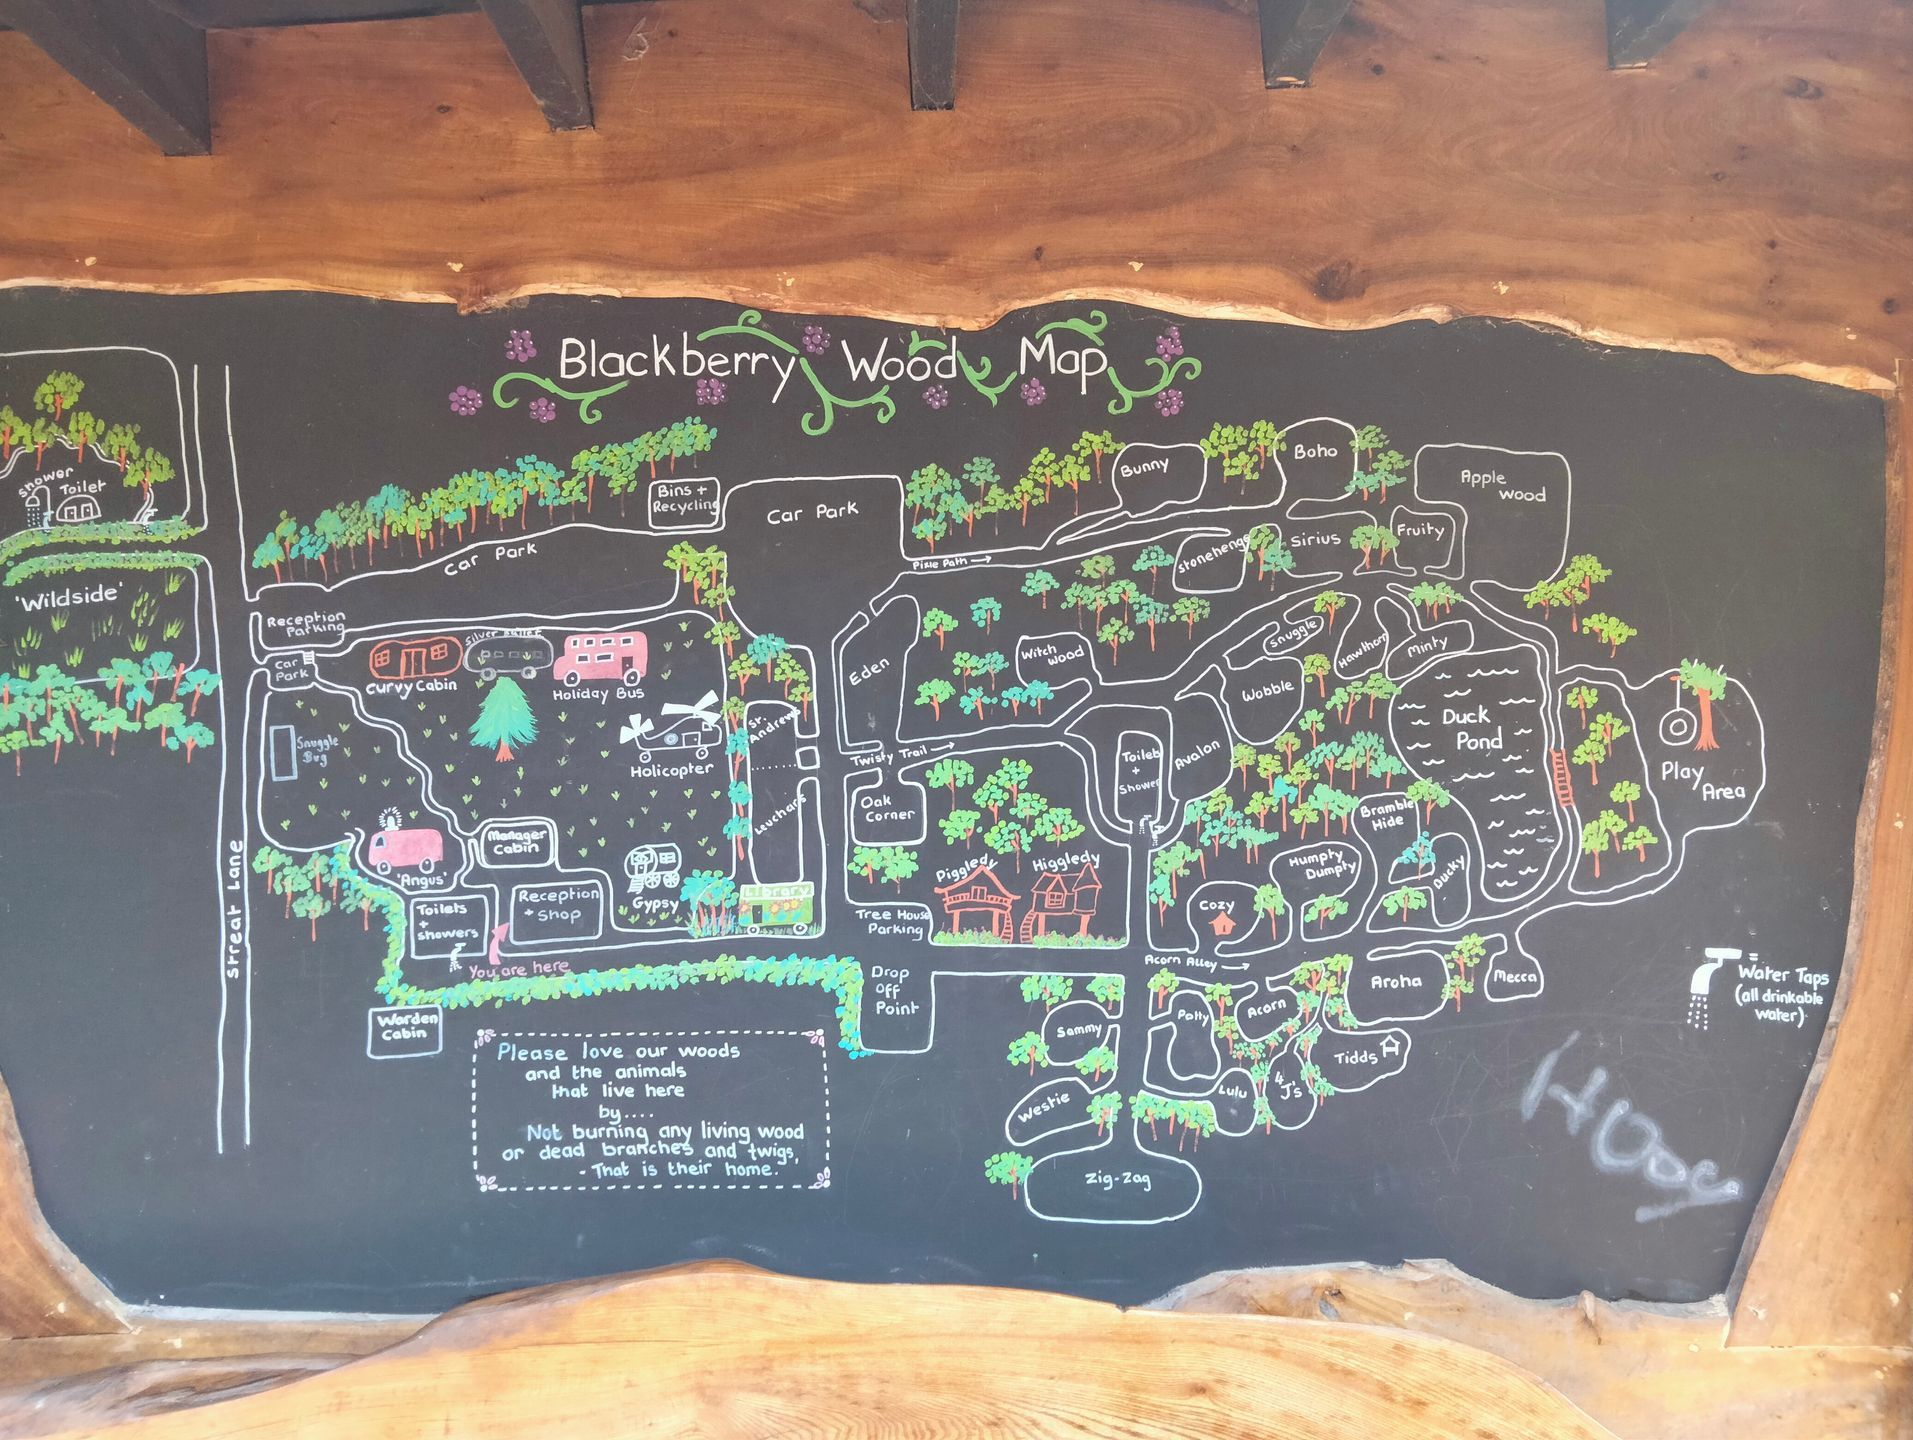 Blackberry Wood Map
Bunny
Boho
Apple
wood
shower
Toilet
Bins +
Recycling
Car Park
Car Park
Pixie Path
Stonehenge
Sirius
Fruity
'Wildside'
Reception
Parking
Car
Park
Silver Bullet
Curvy Cabin
Holiday Bus
Eden
Witch
wood
Snuggle
Hawthorn
Minty
Wobble
Duck
Pond
Play
Area
Snuggle
Bug
Holicopter
St.
Andrews
Twisty Trail
Toilets
+
Shower
Avalon
Leuchars
Oak
Corner
Bramble
Hide
Manager
Cabin
'Angus'
Piggledy
Higgledy
Humpty
Dumpty
Ducky
Streat Lane
Toilets
+
showers
Reception
+ Shop
Gypsy
Library
Tree House
Parking
Cozy
You are here
Acorn Alley
Drop
Off
Point
Aroha
Mecca
Water Taps
(all drinkable
water)
Warden
Cabin
Sammy
Potty
Acorn
Tidds
Lulu
4
J's
Westie
Zig-Zag
Please love our woods
and the animals
that live here
by....
Not burning any living wood
or dead branches and twigs,
- That is their home.